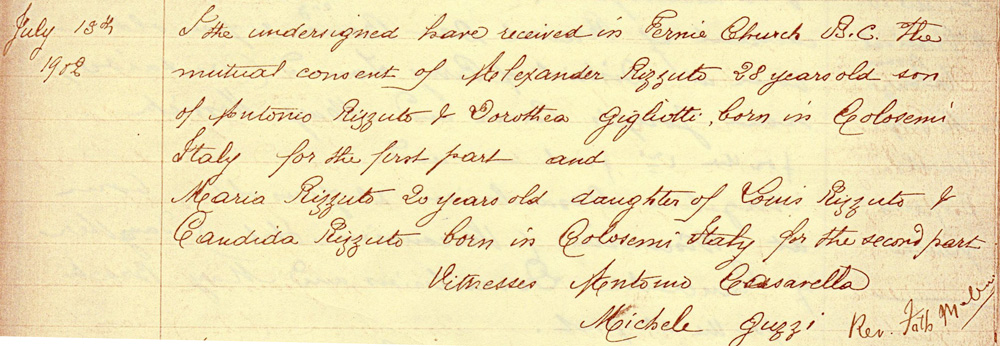 July 13th
1902
I the undersigned have received in Fernie Church B.C. the
mutual consent of Alexander Rizzuto 28 years old son
of Antonio Rizzuto & Dorothea Gigliotti, born in Colosemi
Italy for the first part and
Maria Rizzuto 20 years old daughter of Louis Rizzuto &
Candida Rizzuto born in Colosemi Italy for the second part
Witnesses Antonio Casarella
Michele Guzzi Rev. Fath